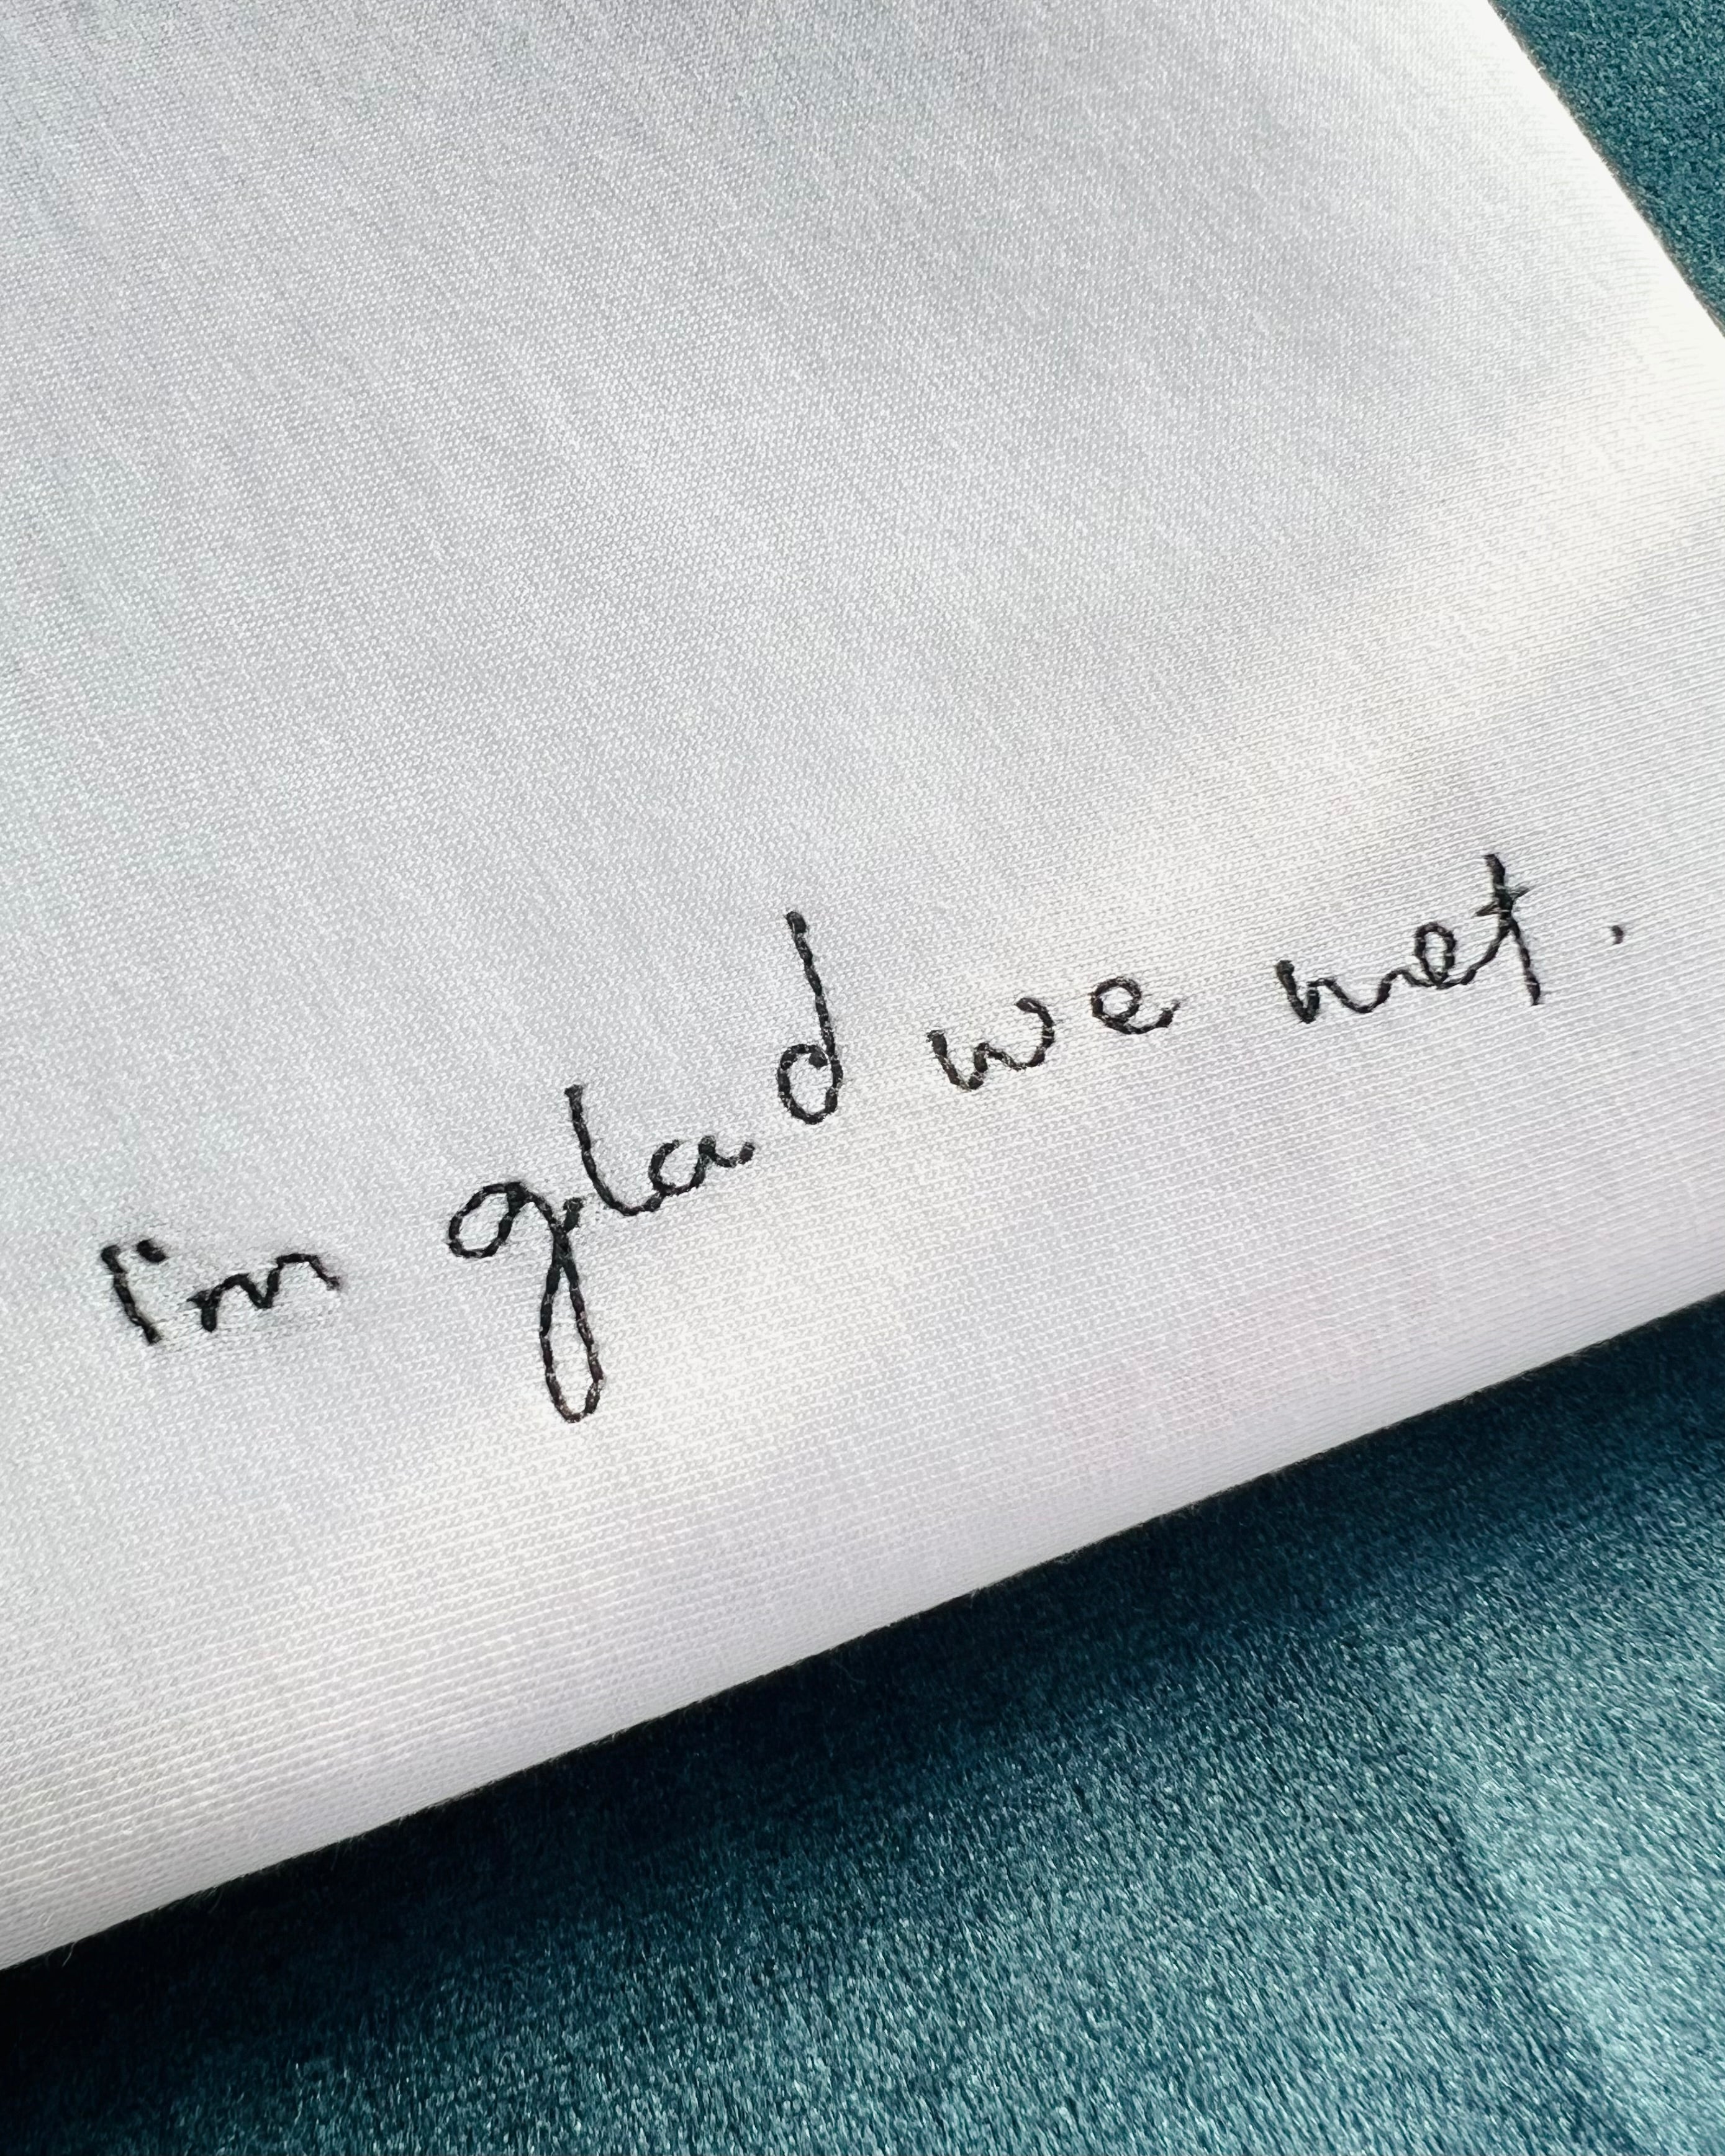 I'm glad we met.